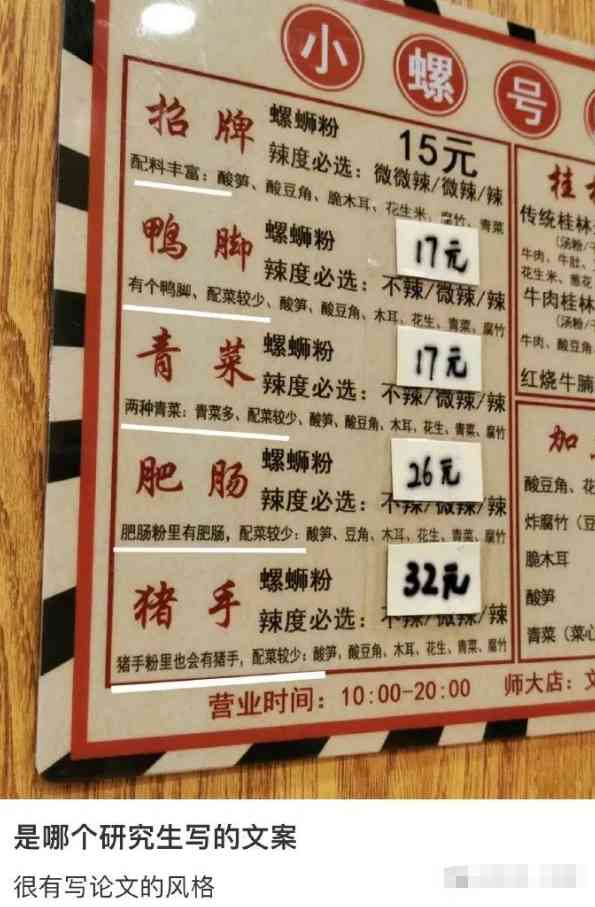 小螺号
招牌 螺蛳粉 15元
辣度必选：微微辣/微辣/辣
配料丰富：酸笋、酸豆角、脆木耳、花生米、腐竹、青菜
鸭脚 螺蛳粉 17元
辣度必选：不辣/微辣/辣
有个鸭脚、配菜较少、酸笋、酸豆角、木耳、花生、青菜、腐竹
青菜 螺蛳粉 17元
辣度必选：不辣/微辣/辣
两种青菜：青菜多、配菜较少、酸笋、酸豆角、木耳、花生、青菜、腐竹
肥肠 螺蛳粉 26元
辣度必选：不辣/微辣/辣
肥肠粉里有肥肠，配菜较少：酸笋、豆角、木耳、花生、青菜、腐竹
猪手 螺蛳粉 32元
辣度必选：不辣/微辣/辣
猪手粉里也会有猪手，配菜较少：酸笋，酸豆角、木耳、花生、青菜、腐竹
桂林
传统桂林
(汤粉/
牛肉、牛肚、
花生米、葱花
牛肉桂林
(汤粉/
牛肉、酸豆角
红烧牛腩
加
酸豆角、花
炸腐竹（豆
脆木耳
酸笋
青菜（菜心
营业时间：10:00-20:00 师大店：文
是哪个研究生写的文案
很有写论文的风格